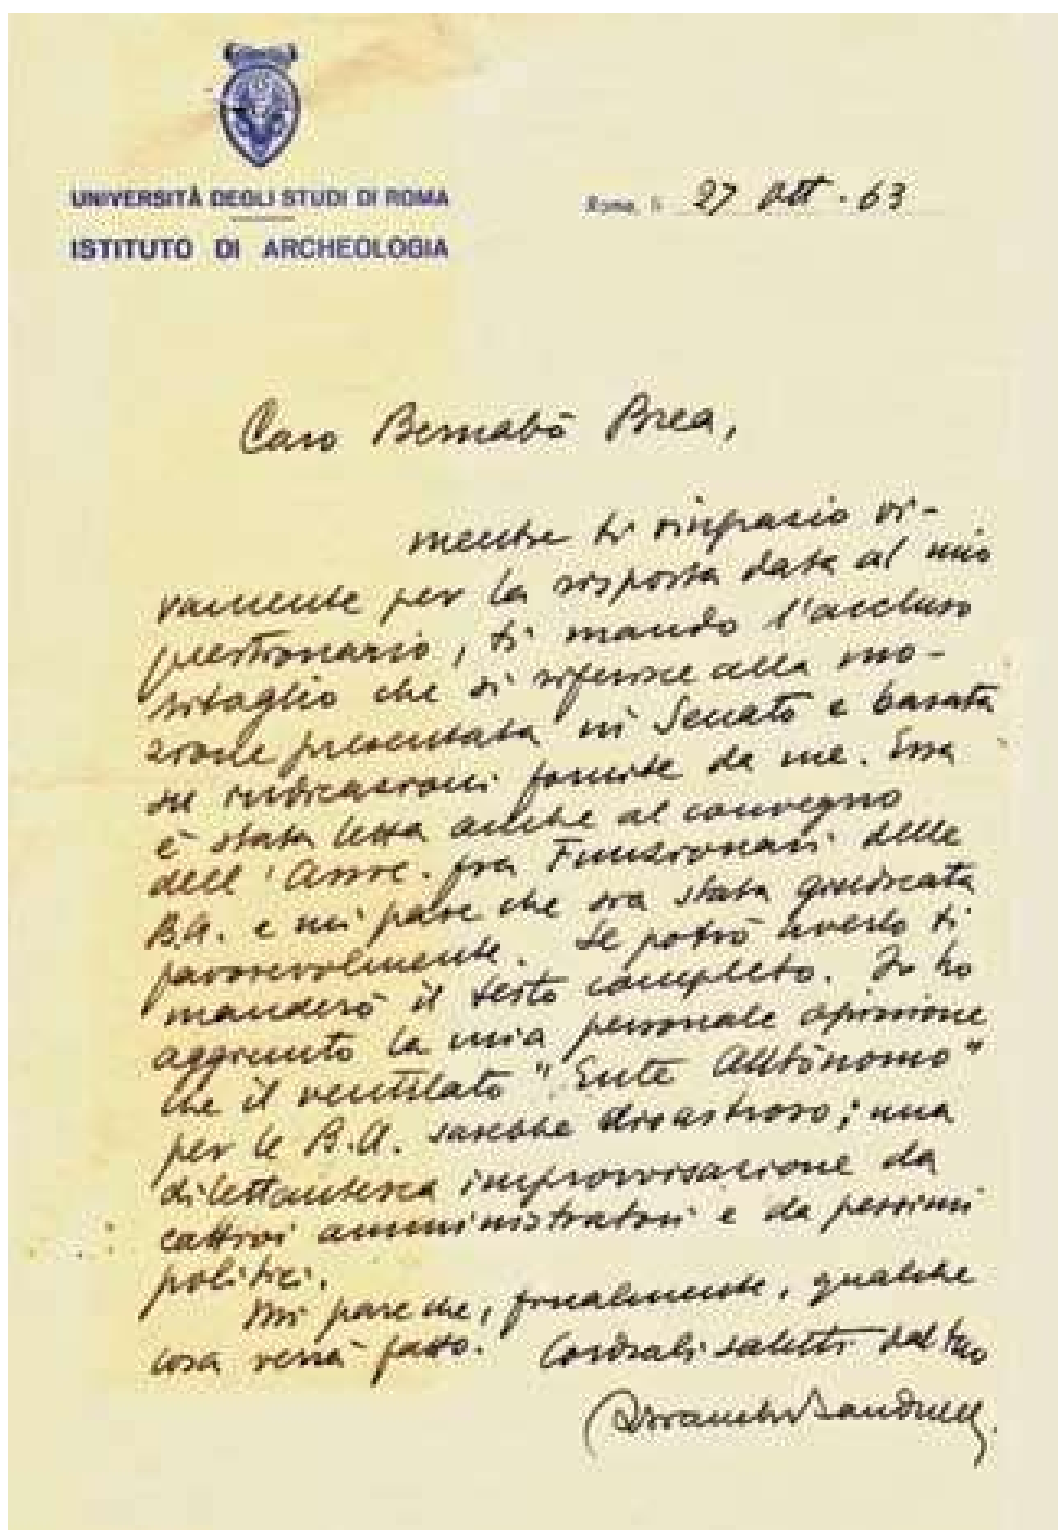 UNIVERSITÀ DEGLI STUDI DI ROMA
ISTITUTO DI ARCHEOLOGIA
Roma, li 27 Ott. 63
Caro Bernabò Brea,
mentre ti ringrazio vi-
vamente per la risposta data al mio
questionario, ti mando l'accluso
ritaglio che si riferisce alla mo-
zione presentata in Senato e basata
su indicazioni fornite da me. Essa
è stata letta anche al convegno
dell'Assoc. fra Funzionari delle
B.A. e mi pare che sia stata giudicata
favorevolmente. Se potrò averlo ti
manderò il testo completo. Io ho
aggiunto la mia personale opinione
che il ventilato "Ente Autònomo"
per le B.A. sarebbe disastroso; una
dilettantesca improvvisazione da
cattivi amministratori e da pessimi
politici.
Mi pare che, finalmente, qualche
cosa verrà fatto. Cordiali saluti dal tuo
RBianchi Bandinelli